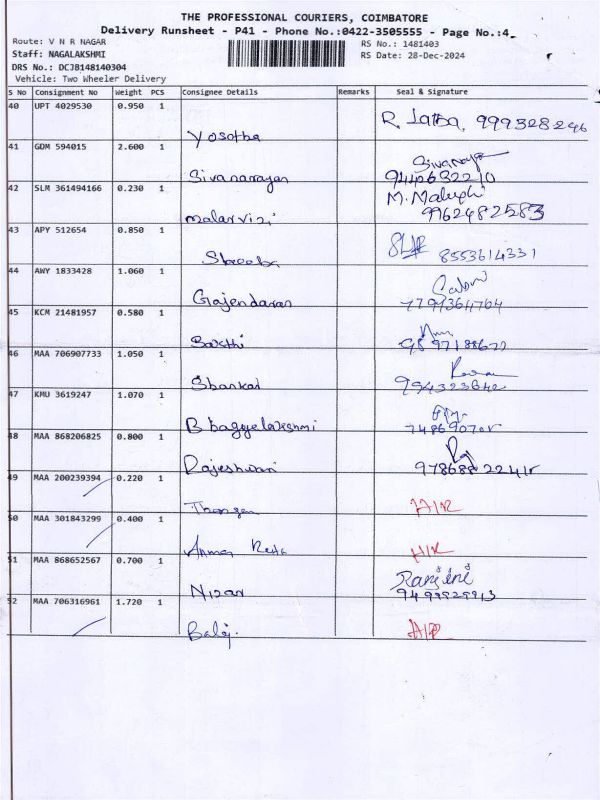 THE PROFESSIONAL COURIERS, COIMBATORE
Delivery Runsheet - P41 - Phone No.:0422-3505555 - Page No.:4
Route: V N R NAGAR
RS No.: 1481403
Staff: NAGALAKSHMI
RS Date: 28-Dec-2024
DRS No.: DCJB148140304
Vehicle: Two Wheeler Delivery
S No Consignment No Weight PCS Consignee Details Remarks Seal & Signature
40 UPT 4029530 0.950 1
R. Latha, 999328246
Yosotha
41 GDM 594015 2.600 1
Sivanarayan
42 SLM 361494166 0.230 1
M.
9962482583
malarvizi
43 APY 512654 0.850 1
8553614331
Shreeba
44 AWY 1833428 1.060 1
7794364764
Gajendaran
45 KCM 21481957 0.580 1
Sakthi
46 MAA 706907733 1.050 1
994323642
Shankar
47 KMU 3619247 1.070 1
Bhagyelakshmi
48 MAA 868206825 0.800 1
Rajeshwari
49 MAA 200239394 0.220 1
50 MAA 301843299 0.400 1
51 MAA 868652567 0.700 1
Ranjini
Nizar
52 MAA 706316961 1.720 1
Balaji.